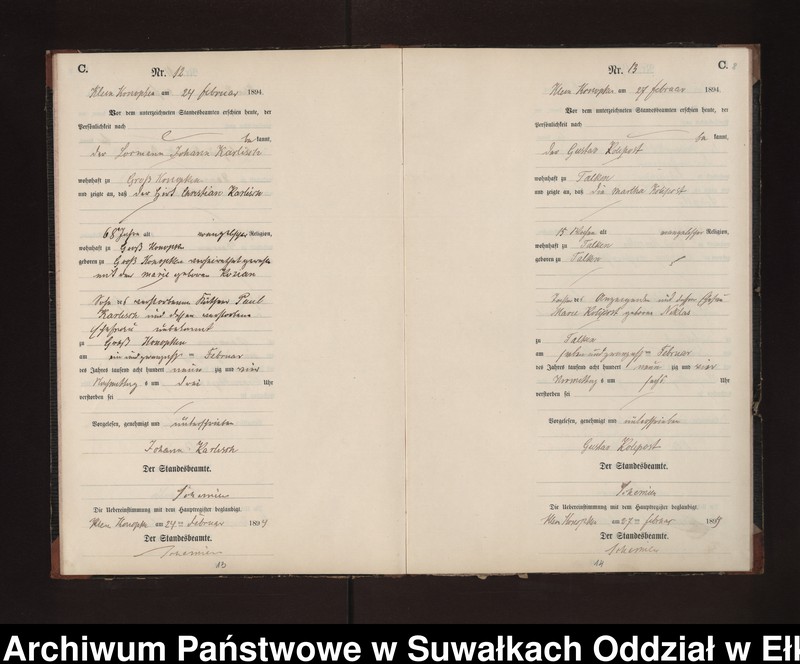 C.
Nr. 12
Klein Konopken am 24 Februar 1894.
Vor dem unterzeichneten Standesbeamten erschien heute, der
Persönlichkeit nach
be kannt,
der Johann Karlisch
wohnhaft zu Groß Konopken
und zeigte an, daß der Hirt Christian Karlisch
68 Jahre alt evangelischer Religion,
wohnhaft zu Groß Konopken
geboren zu Groß Konopken verheirathet gewesen
mit der Marie geboren
Sohn des verstorbenen Paul
Karlisch und dessen verstorbene
Ehefrau unbekannt
zu Groß Konopken
am ein und zwanzigsten Februar
des Jahres tausend acht hundert neun zig und vier
Nachmittag s um drei Uhr
verstorben sei
Vorgelesen, genehmigt und unterschrieben
Johann Karlisch
Der Standesbeamte.
Die Uebereinstimmung mit dem Hauptregister beglaubigt.
Klein Konopken am 24ten Februar 1894
Der Standesbeamte.
13
C.
Nr. 13
Klein Konopken am 27 Februar 1894.
Vor dem unterzeichneten Standesbeamten erschien heute, der
Persönlichkeit nach
be kannt,
der Gustav Kolipost
wohnhaft zu Talken
und zeigte an, daß die Martha Kolipost
15 Wochen alt evangelischer Religion,
wohnhaft zu Talken
geboren zu Talken
Tochter des und dessen Ehefrau
Marie Kolipost geborene Niklas
zu Talken
am sieben und zwanzigsten Februar
des Jahres tausend acht hundert neun zig und vier
Vormittag s um sechs Uhr
verstorben sei
Vorgelesen, genehmigt und unterschrieben
Gustav Kolipost
Der Standesbeamte.
Die Uebereinstimmung mit dem Hauptregister beglaubigt.
Klein Konopken am 27ten Februar 1894
Der Standesbeamte.
14
Archiwum Państwowe w Suwałkach Oddział w Ełk